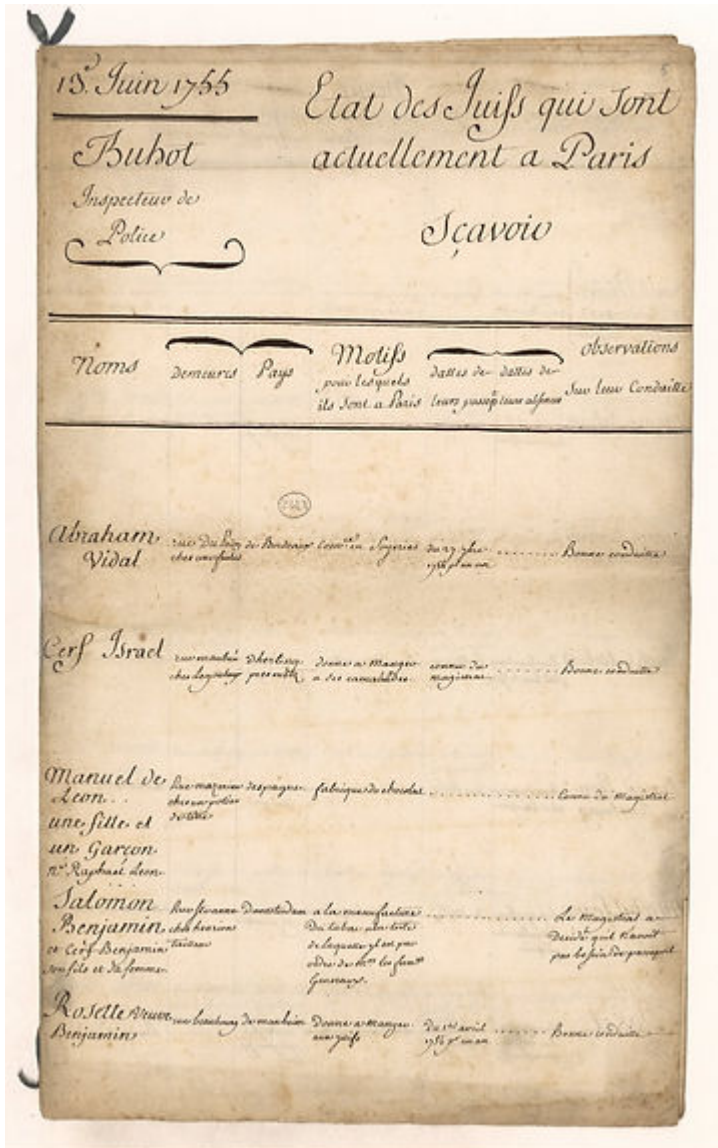 13. Juin 1755
Buhot
Inspecteur de
Police
Etat des Juifs qui sont
actuellement a Paris
Sçavoir
Noms
Demeures
Pays
Motifs
pour lesquels
ils sont a Paris
dattes de
leurs
dattes de
leurs
observations
Sur leur Conduitte
Abraham
Vidal
de Bordeaux
du 27
Bonne conduitte
Cerf Israel
donne a Manger
a ses
connu du
magistrat
Bonne conduitte
Manuel de
Leon
une fille et
un Garçon
Raphael Leon
Rue mazarine
chez un potier
despagne
fabrique du chocolat
Connu du Magistrat
Salomon
Benjamin
et Cerf Benjamin
son fils et sa femme
Rue
chez
tailleur
Damsterdam
a la manufacture
Du tabac
de laquelle il est par
ordre de les
Generaux.
Le Magistrat a
Decidé quil n'avoit
pas besoin de passeport
Rosette Veuve
Benjamin
rue beaubourg
de manheim
Donne a manger
aux juifs
Du 1er avril
un an
Bonne conduitte